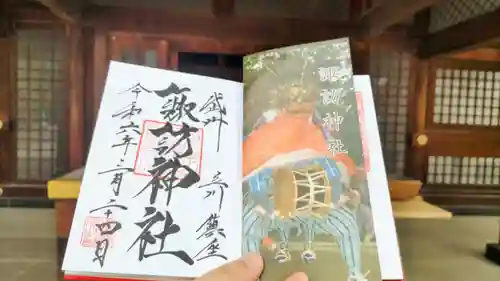 武州
立川鎮座
諏訪神社
令和六年三月二十四日
諏訪神社